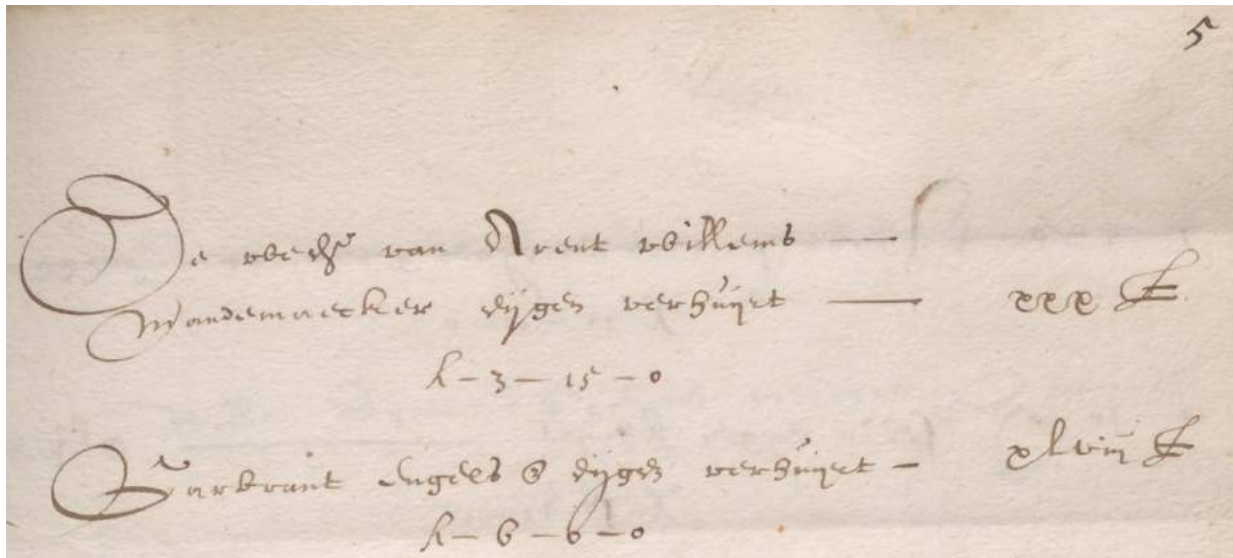 5
De wede van Arent willems —
Mandemaecker eijgen verhuijrt — xxx £
k - 3 - 15 - 0
engels eijgen verhuijrt - xlviij £
k - 6 - 6 - 0